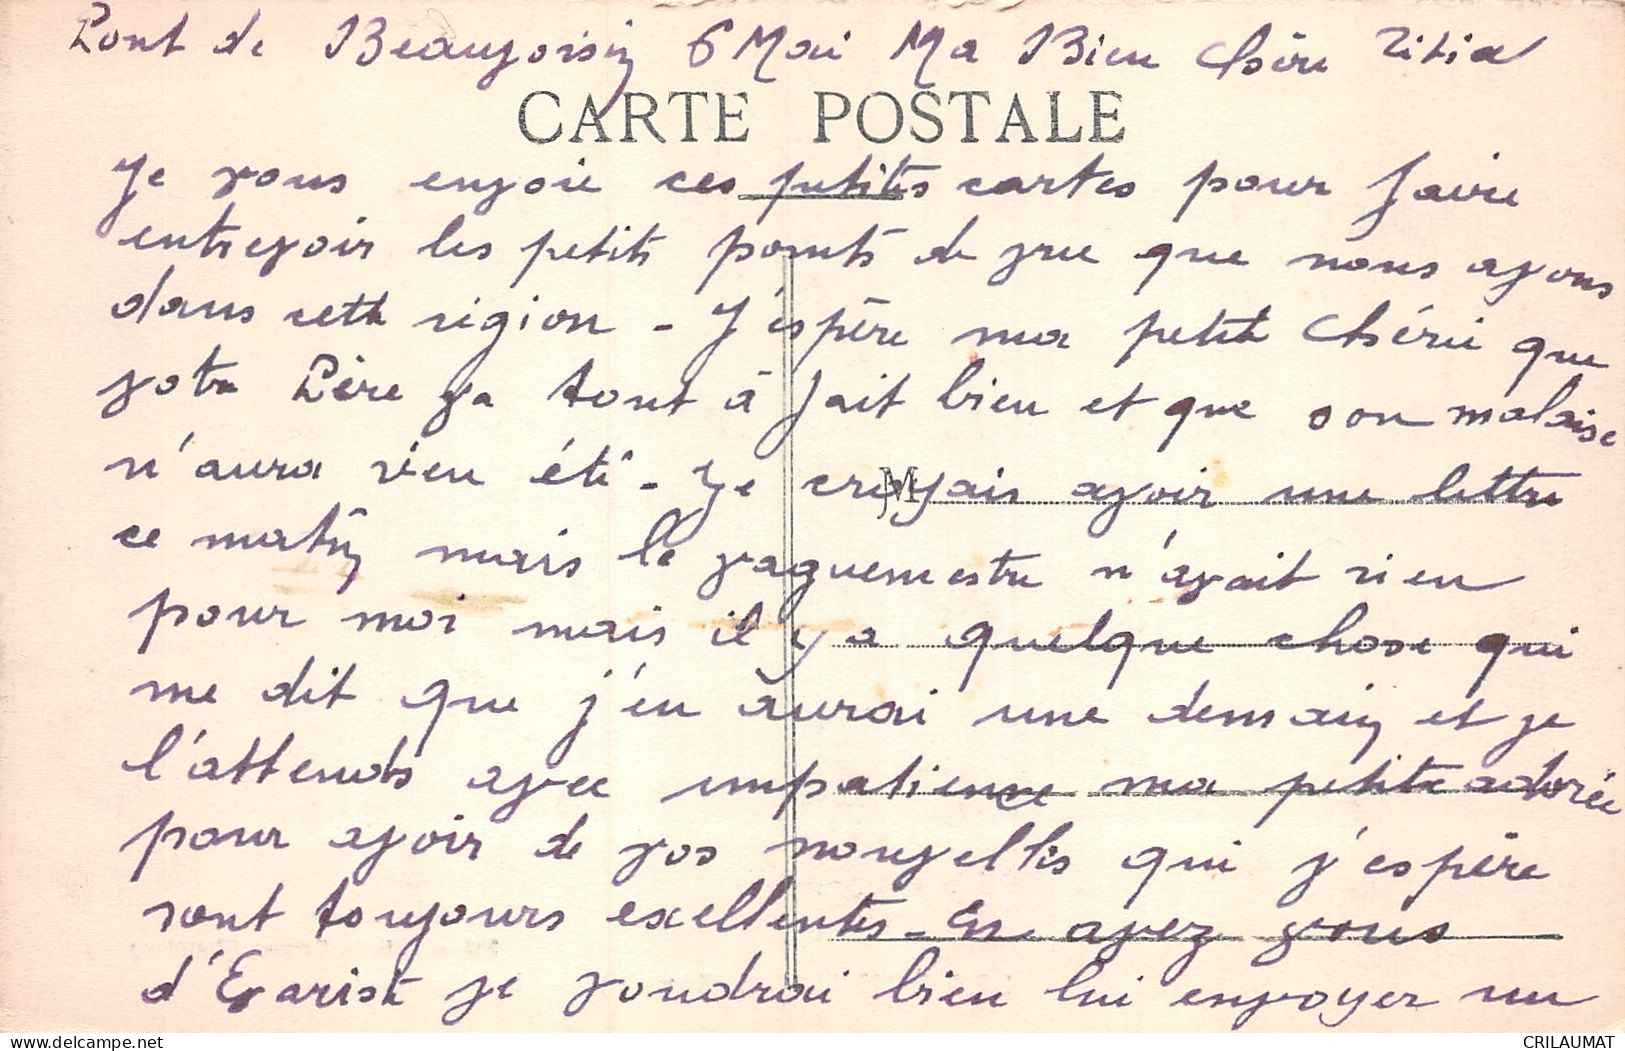 Pont de Beauvoisin 6 Mai Ma Bien Chère Titia
CARTE POSTALE
Je vous envoie ces petites cartes pour faire
entrevoir les petits points de vue que nous avons
dans cette région - J'espère ma petite Chérie que
votre Père va tout à fait bien et que son malaise
n'aura rien été - Je croyais avoir une lettre
M
ce matin mais le vaguemestre n'avait rien
pour moi mais il y a quelque chose qui
me dit que j'en aurai une demain et je
l'attends avec impatience ma petite adorée
pour avoir de vos nouvelles qui j'espère
sont toujours excellentes - En avez vous
d'Evariste je voudrai bien lui envoyer un
delcampe.net
CRILAUMAT